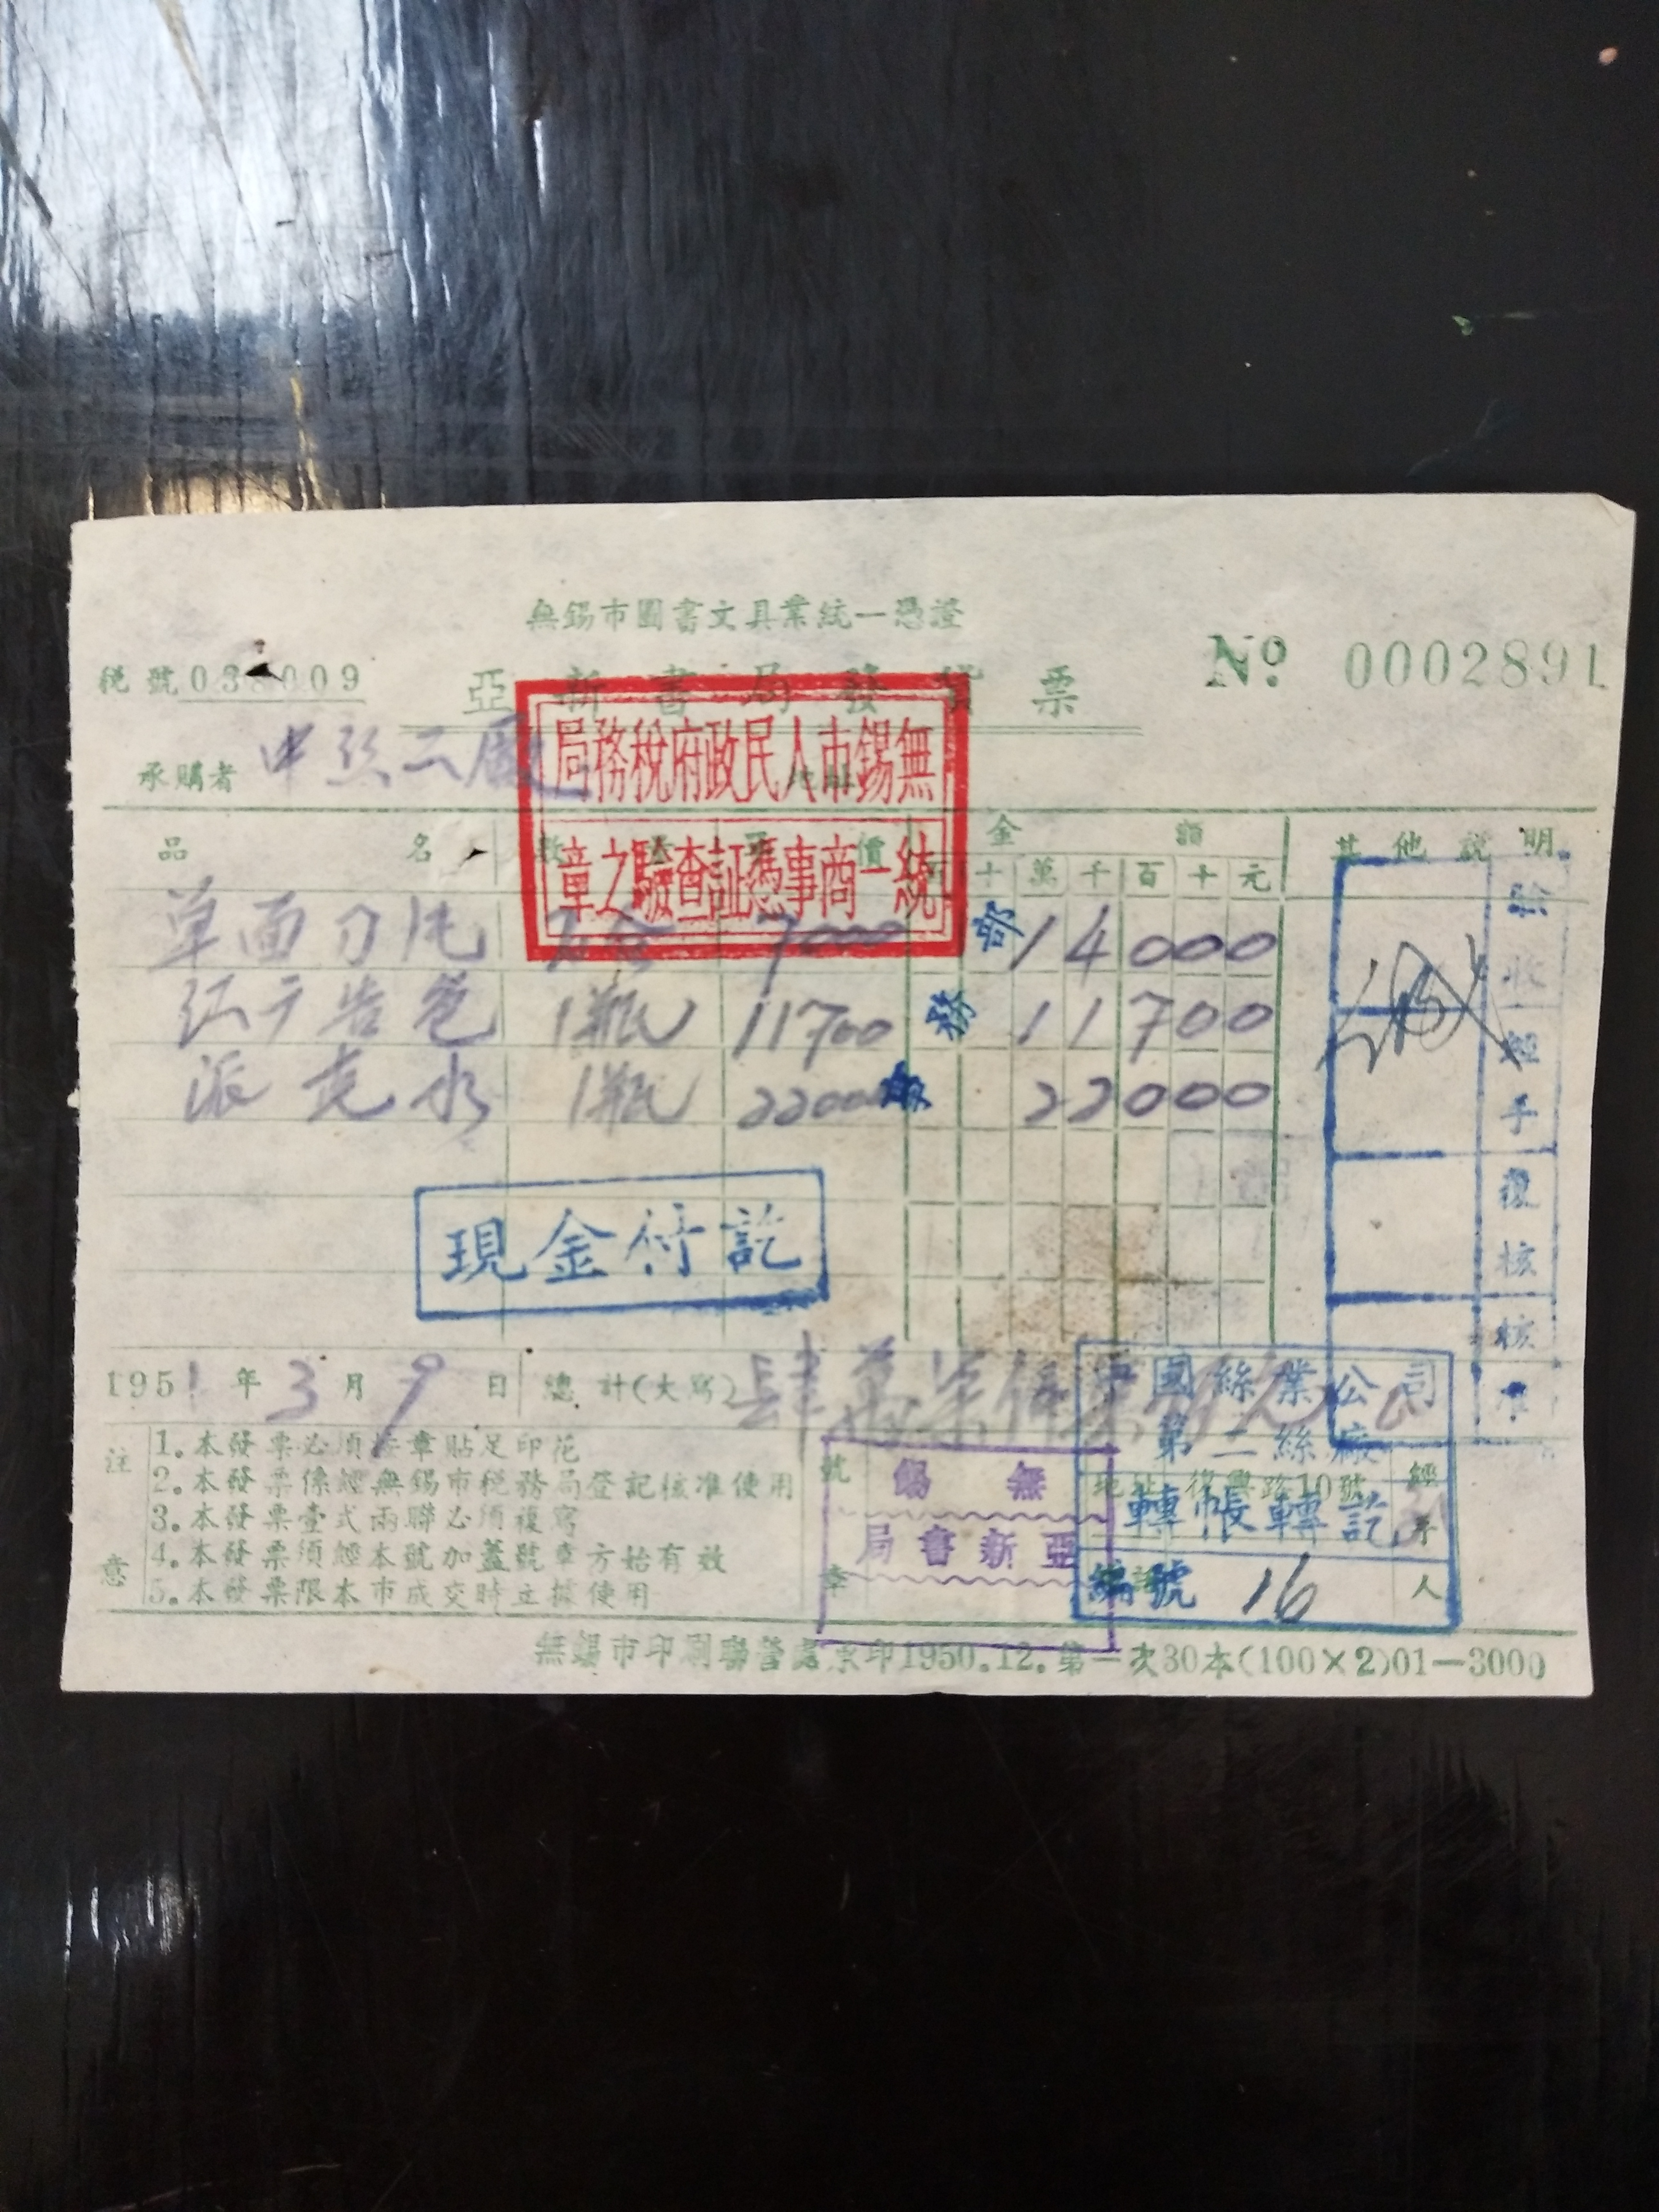 無錫市圖書文具業統一憑證
稅號 038009
亞新書局發貨票
No 0002891
承購者 中絲二廠
無錫市人民政府稅務局
統一商事憑証查驗之章
品名 數 價 金額 其他說明
十萬千百十元
單面刀片 2 7000 14000
紅廣告色 1瓶 11700 11700
派克水 1瓶 22000 22000
部
務
驗收
經手
復核
核准
現金付訖
1951年3月9日 總計(大寫) 肆萬柒仟柒
注意
1.本發票必須 章貼足印花
2.本發票係經無錫市稅務局登記核准使用
3.本發票壹式兩聯必須複寫
4.本發票須經本號加蓋號章方始有效
5.本發票限本市成交時立據使用
號章
無錫
亞新書局
中國絲業公司
第二絲廠
地址 復興路10號
轉帳轉訖
編號 16
經手人
無錫市印刷聯營處承印1950.12.第一次30本(100×2)01—3000